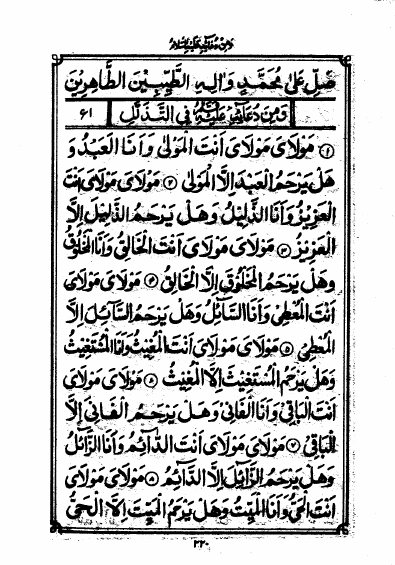 وَمِنْ دُعَائِهِ عَلَيْهِ السَّلَامُ
صَلِّ عَلَىٰ مُحَمَّدٍ وَاٰلِهِ الطَّيِّبِينَ الطَّاهِرِينَ
وَمِنْ دُعَائِهِ عَلَيْهِ السَّلَامُ فِي التَّذَلُّلِ ٦١
① مَوْلَایَ مَوْلَایَ اَنْتَ الْمَوْلٰی وَاَنَا الْعَبْدُ وَ
هَلْ يَرْحَمُ الْعَبْدَ اِلَّا الْمَوْلٰی ② مَوْلَایَ مَوْلَایَ اَنْتَ
الْعَزِيْزُ وَاَنَا الذَّلِيْلُ وَهَلْ يَرْحَمُ الذَّلِيْلَ اِلَّا
الْعَزِيْزُ ③ مَوْلَایَ مَوْلَایَ اَنْتَ الْخَالِقُ وَاَنَا الْمَخْلُوْقُ
وَهَلْ يَرْحَمُ الْمَخْلُوْقَ اِلَّا الْخَالِقُ ④ مَوْلَایَ مَوْلَایَ
اَنْتَ الْمُعْطِیْ وَاَنَا السَّآئِلُ وَهَلْ يَرْحَمُ السَّآئِلَ اِلَّا
الْمُعْطِیْ ⑤ مَوْلَایَ مَوْلَایَ اَنْتَ الْمُغِيْثُ وَاَنَا الْمُسْتَغِيْثُ
وَهَلْ يَرْحَمُ الْمُسْتَغِيْثَ اِلَّا الْمُغِيْثُ مَوْلَایَ مَوْلَایَ
اَنْتَ الْبَاقِیْ وَاَنَا الْفَانِیْ وَهَلْ يَرْحَمُ الْفَانِیَ اِلَّا
الْبَاقِیْ ⑦ مَوْلَایَ مَوْلَایَ اَنْتَ الدَّآئِمُ وَاَنَا الزَّآئِلُ
وَهَلْ يَرْحَمُ الزَّآئِلَ اِلَّا الدَّآئِمُ ⑧ مَوْلَایَ مَوْلَایَ
اَنْتَ الْحَیُّ وَاَنَا الْمَيِّتُ وَهَلْ يَرْحَمُ الْمَيِّتَ اِلَّا الْحَیُّ
٢٢٠